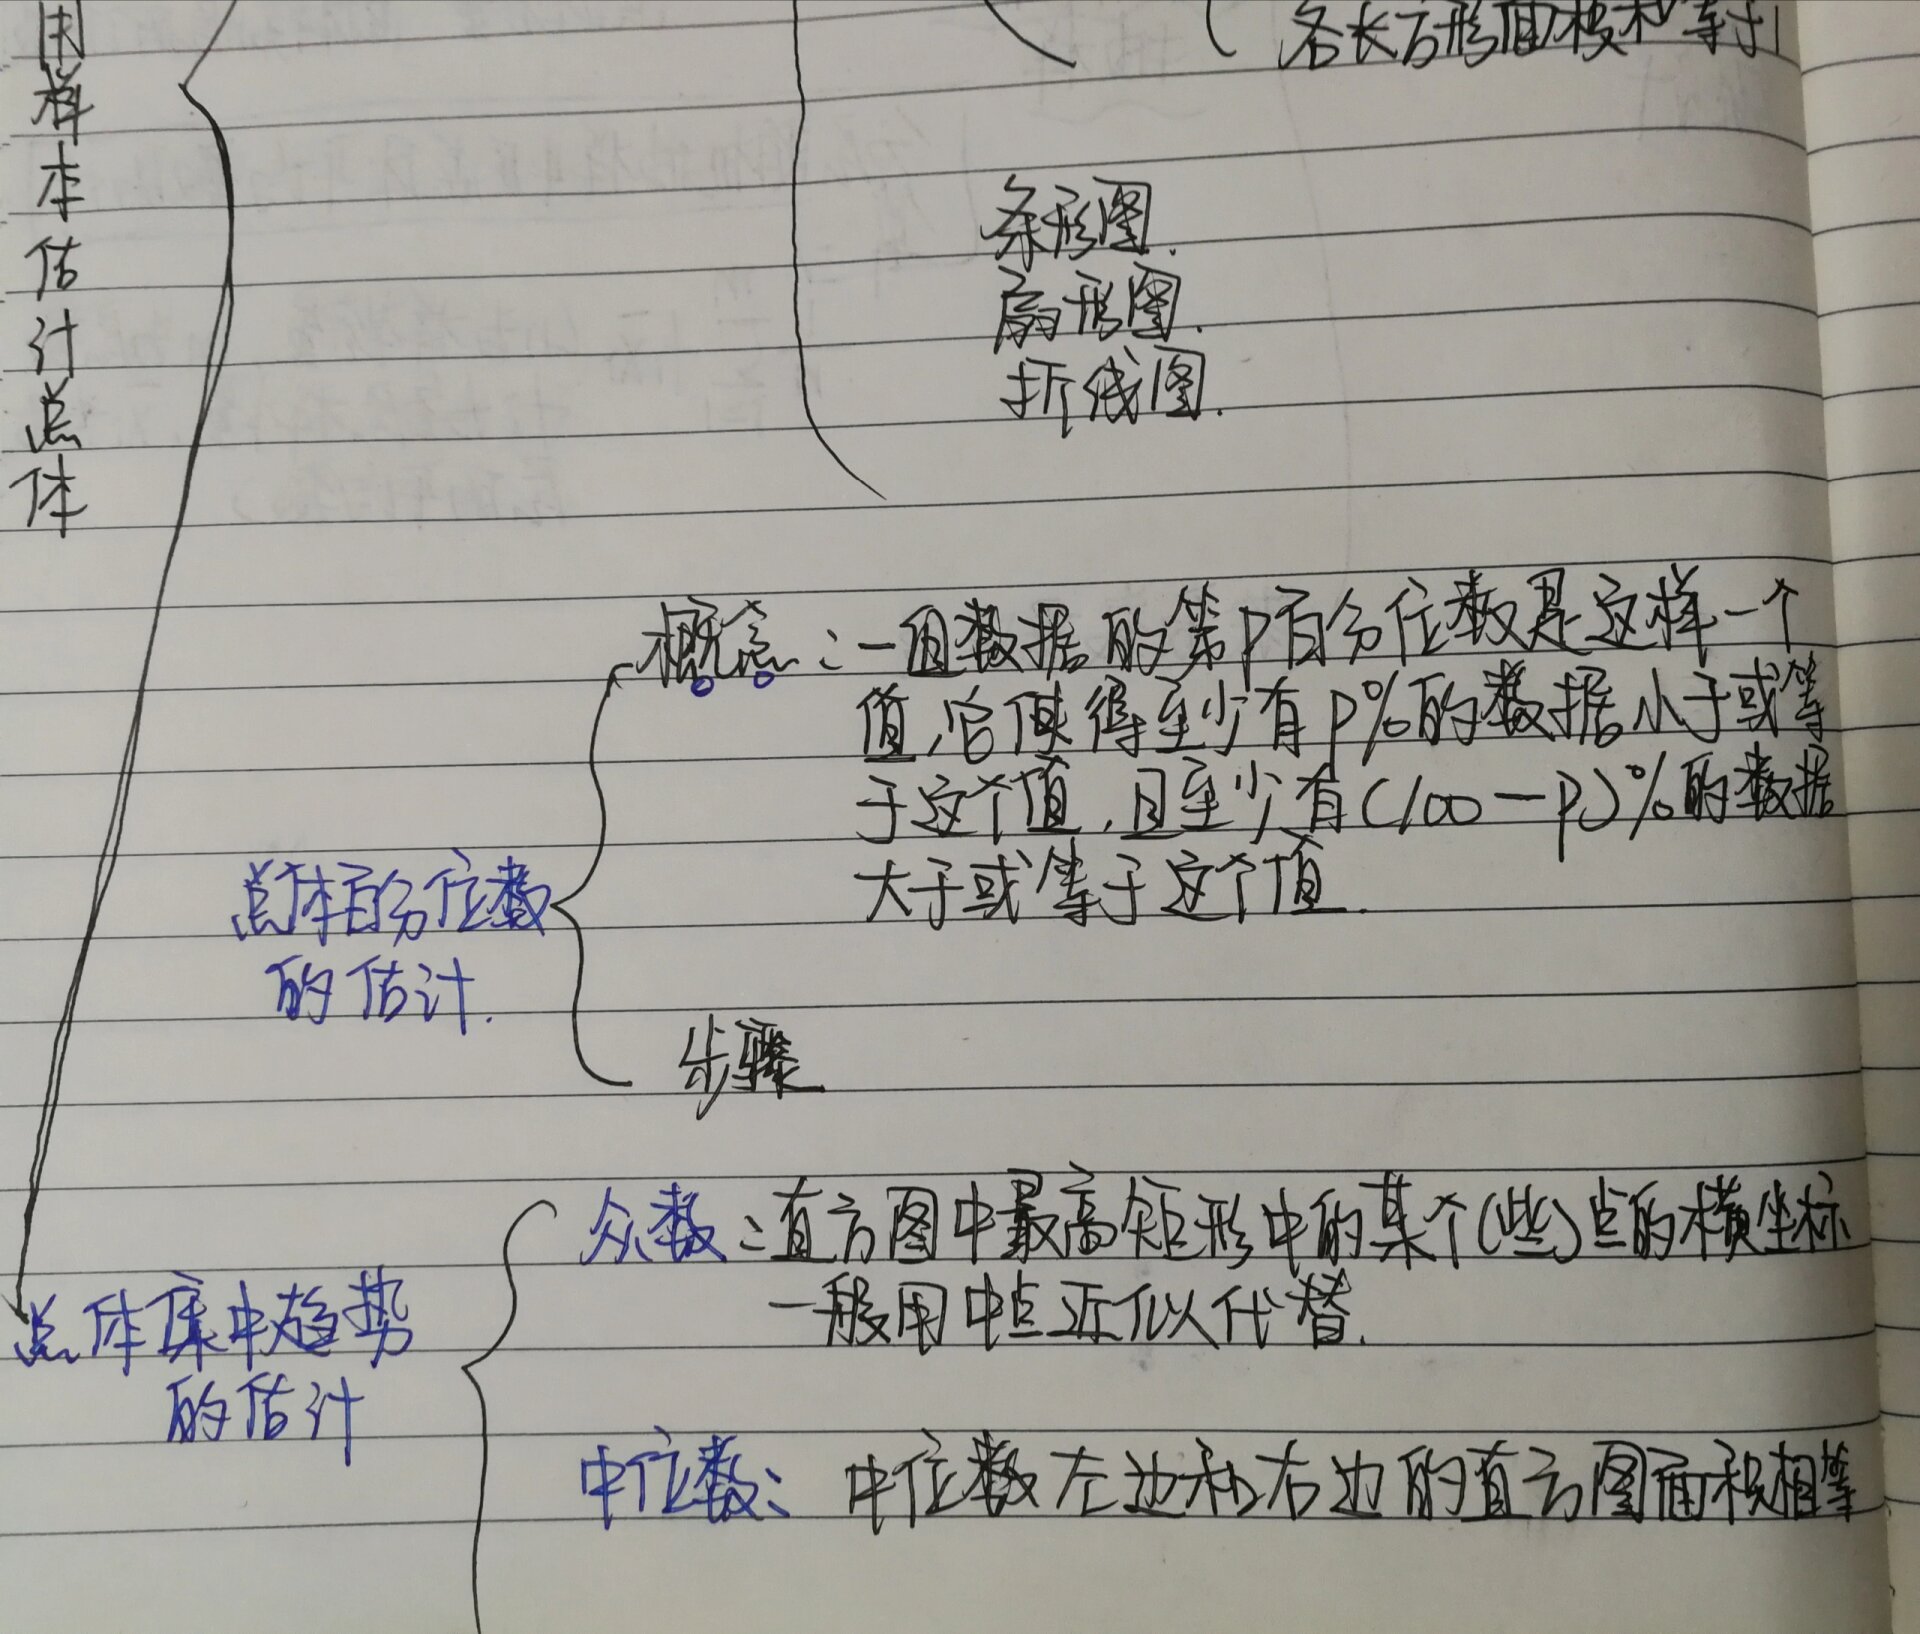 各长方形面积和等于1
用样本估计总体
条形图.
扇形图.
折线图.
概念:一组数据的第p百分位数是这样一个
值,它使得至少有p%的数据小于或等
于这个值,且至少有(100-p)%的数据
大于或等于这个值.
总体百分位数
的估计.
步骤
众数:直方图中最高矩形中的某个(些)点的横坐标
一般用中点近似代替.
总体集中趋势
的估计
中位数:中位数左边和右边的直方图面积相等